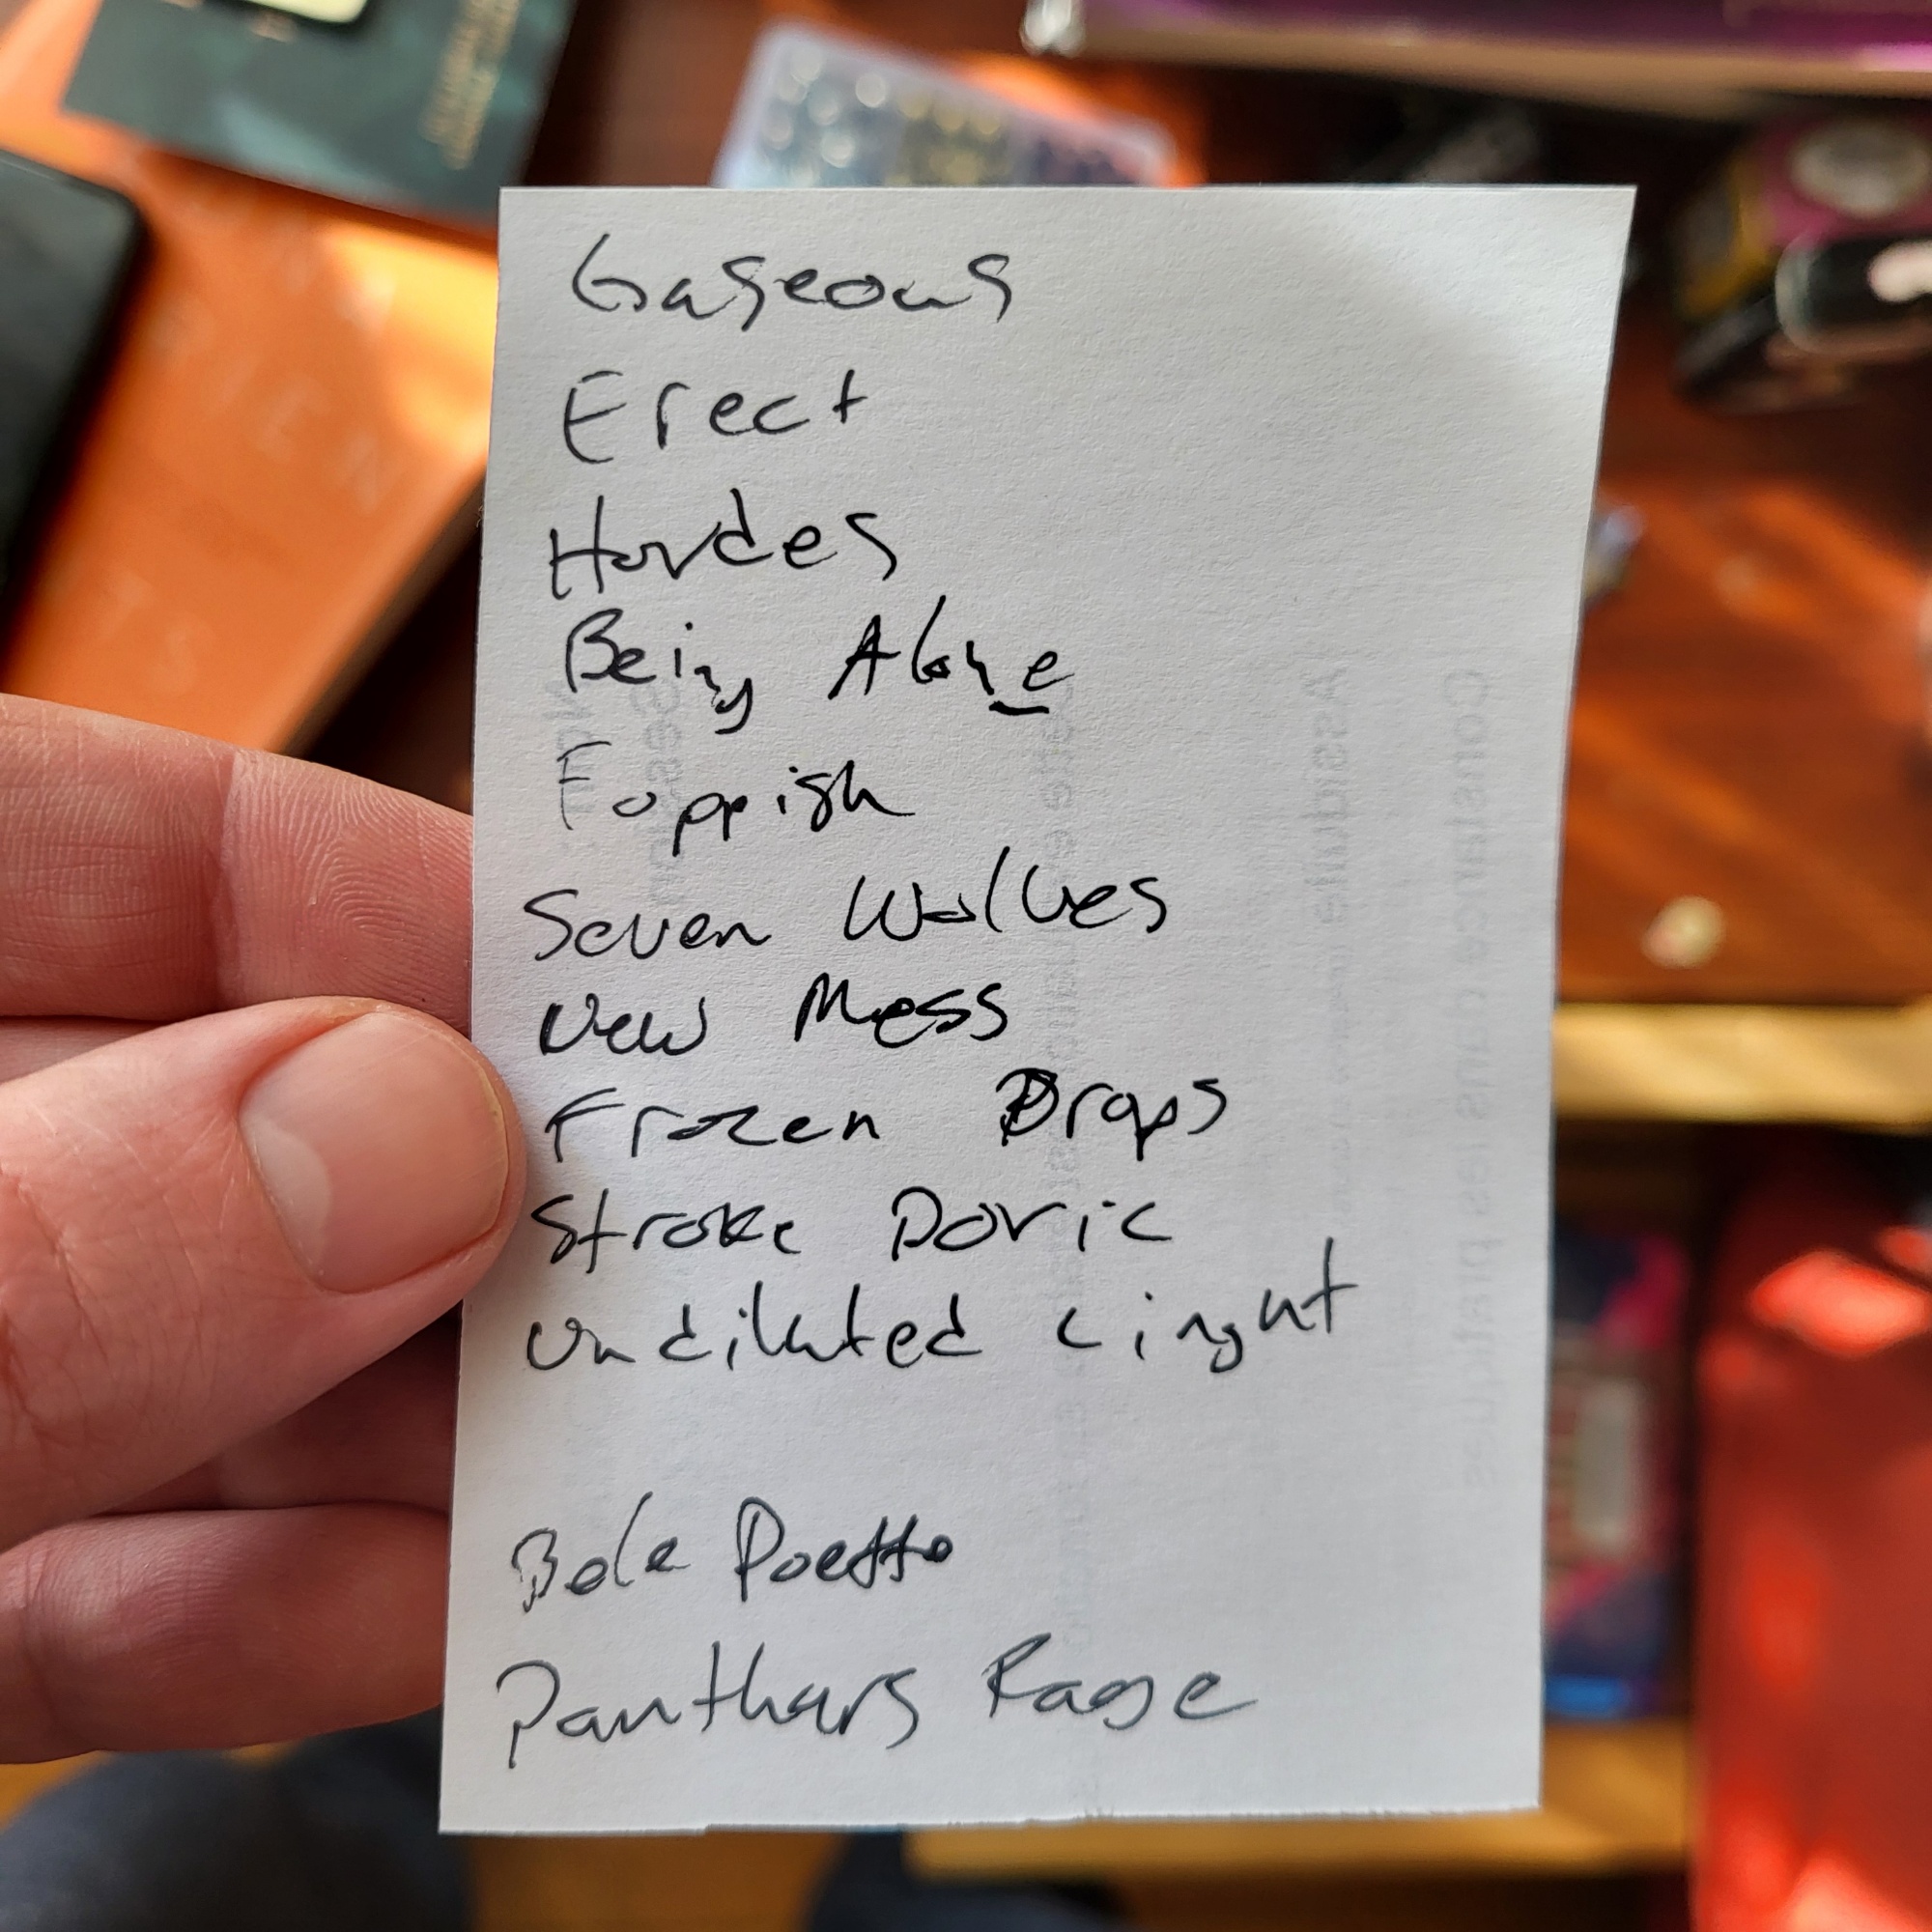 Gaseous
Erect
Hordes
Being Alone
Foppish
Seven Wolves
New Mess
Frozen Drops
Stroke Doric
Undiluted Linght
Bole Poetto
Panthars Rage